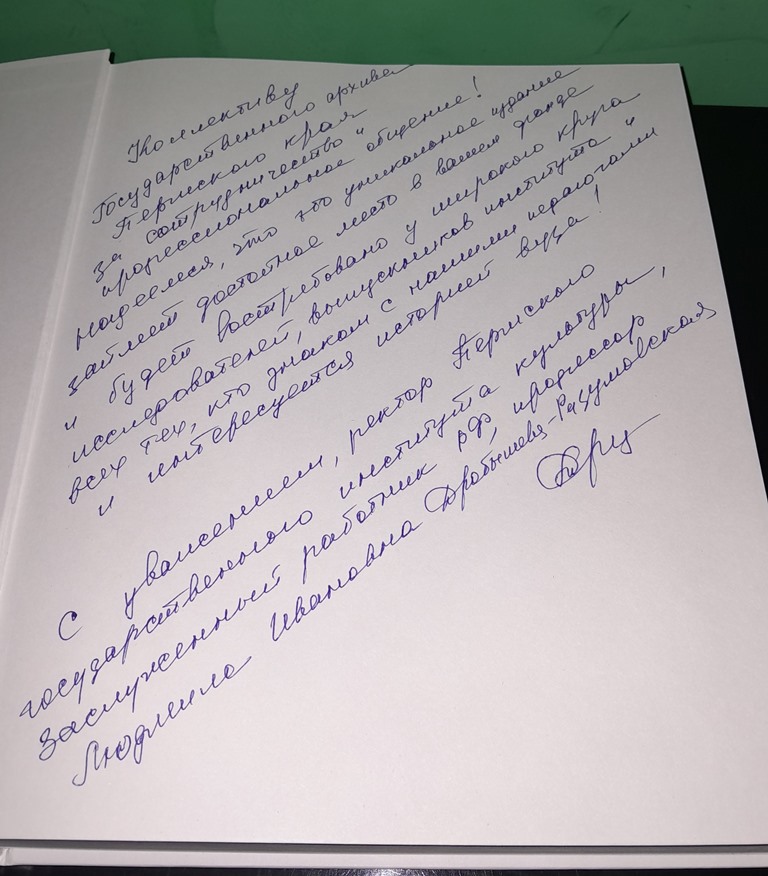 Коллективу
Государственного архива
Пермского края
за сотрудничество и
профессиональное общение!
Надеемся, что это уникальное издание
займет достойное место в вашем фонде
и будет востребовано у широкого круга
исследователей, выпускников института и
всех тех, кто знаком с нашими педагогами
и интересуется историей вуза!
С уважением, ректор Пермского
государственного института культуры,
заслуженный работник РФ, профессор
Людмила Ивановна Дробышева-Разумовская